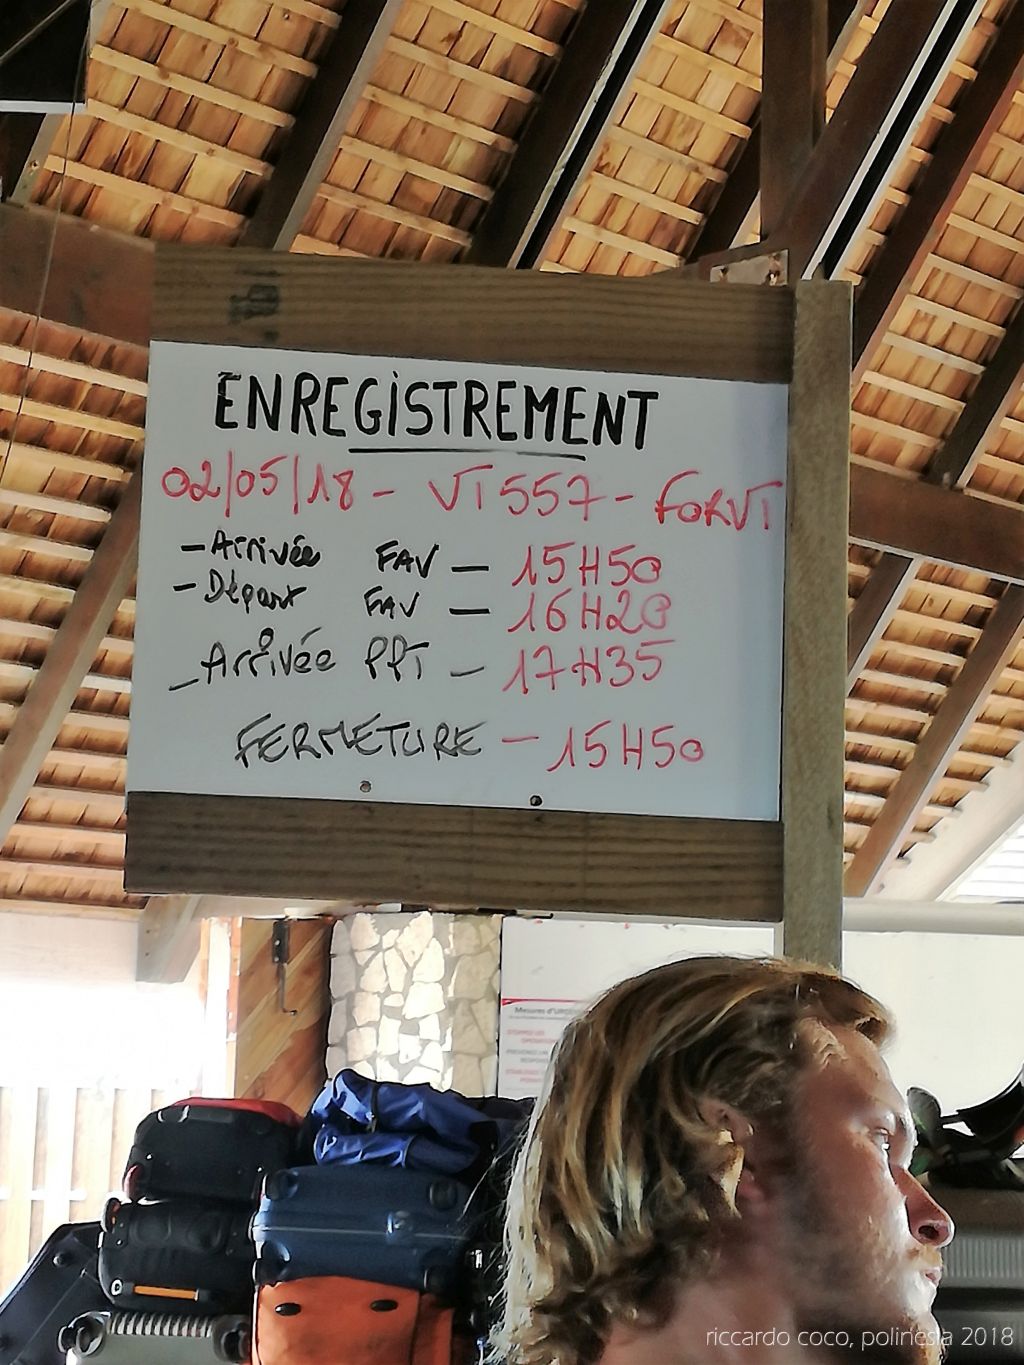 ENREGISTREMENT
02/05/18 - VT557 - FORVT
- Arrivée FAV - 15H50
- Départ FAV - 16H20
- Arrivée PPT - 17H35
FERMETURE - 15H50
Mesures d'URG
riccardo coco, polinesia 2018